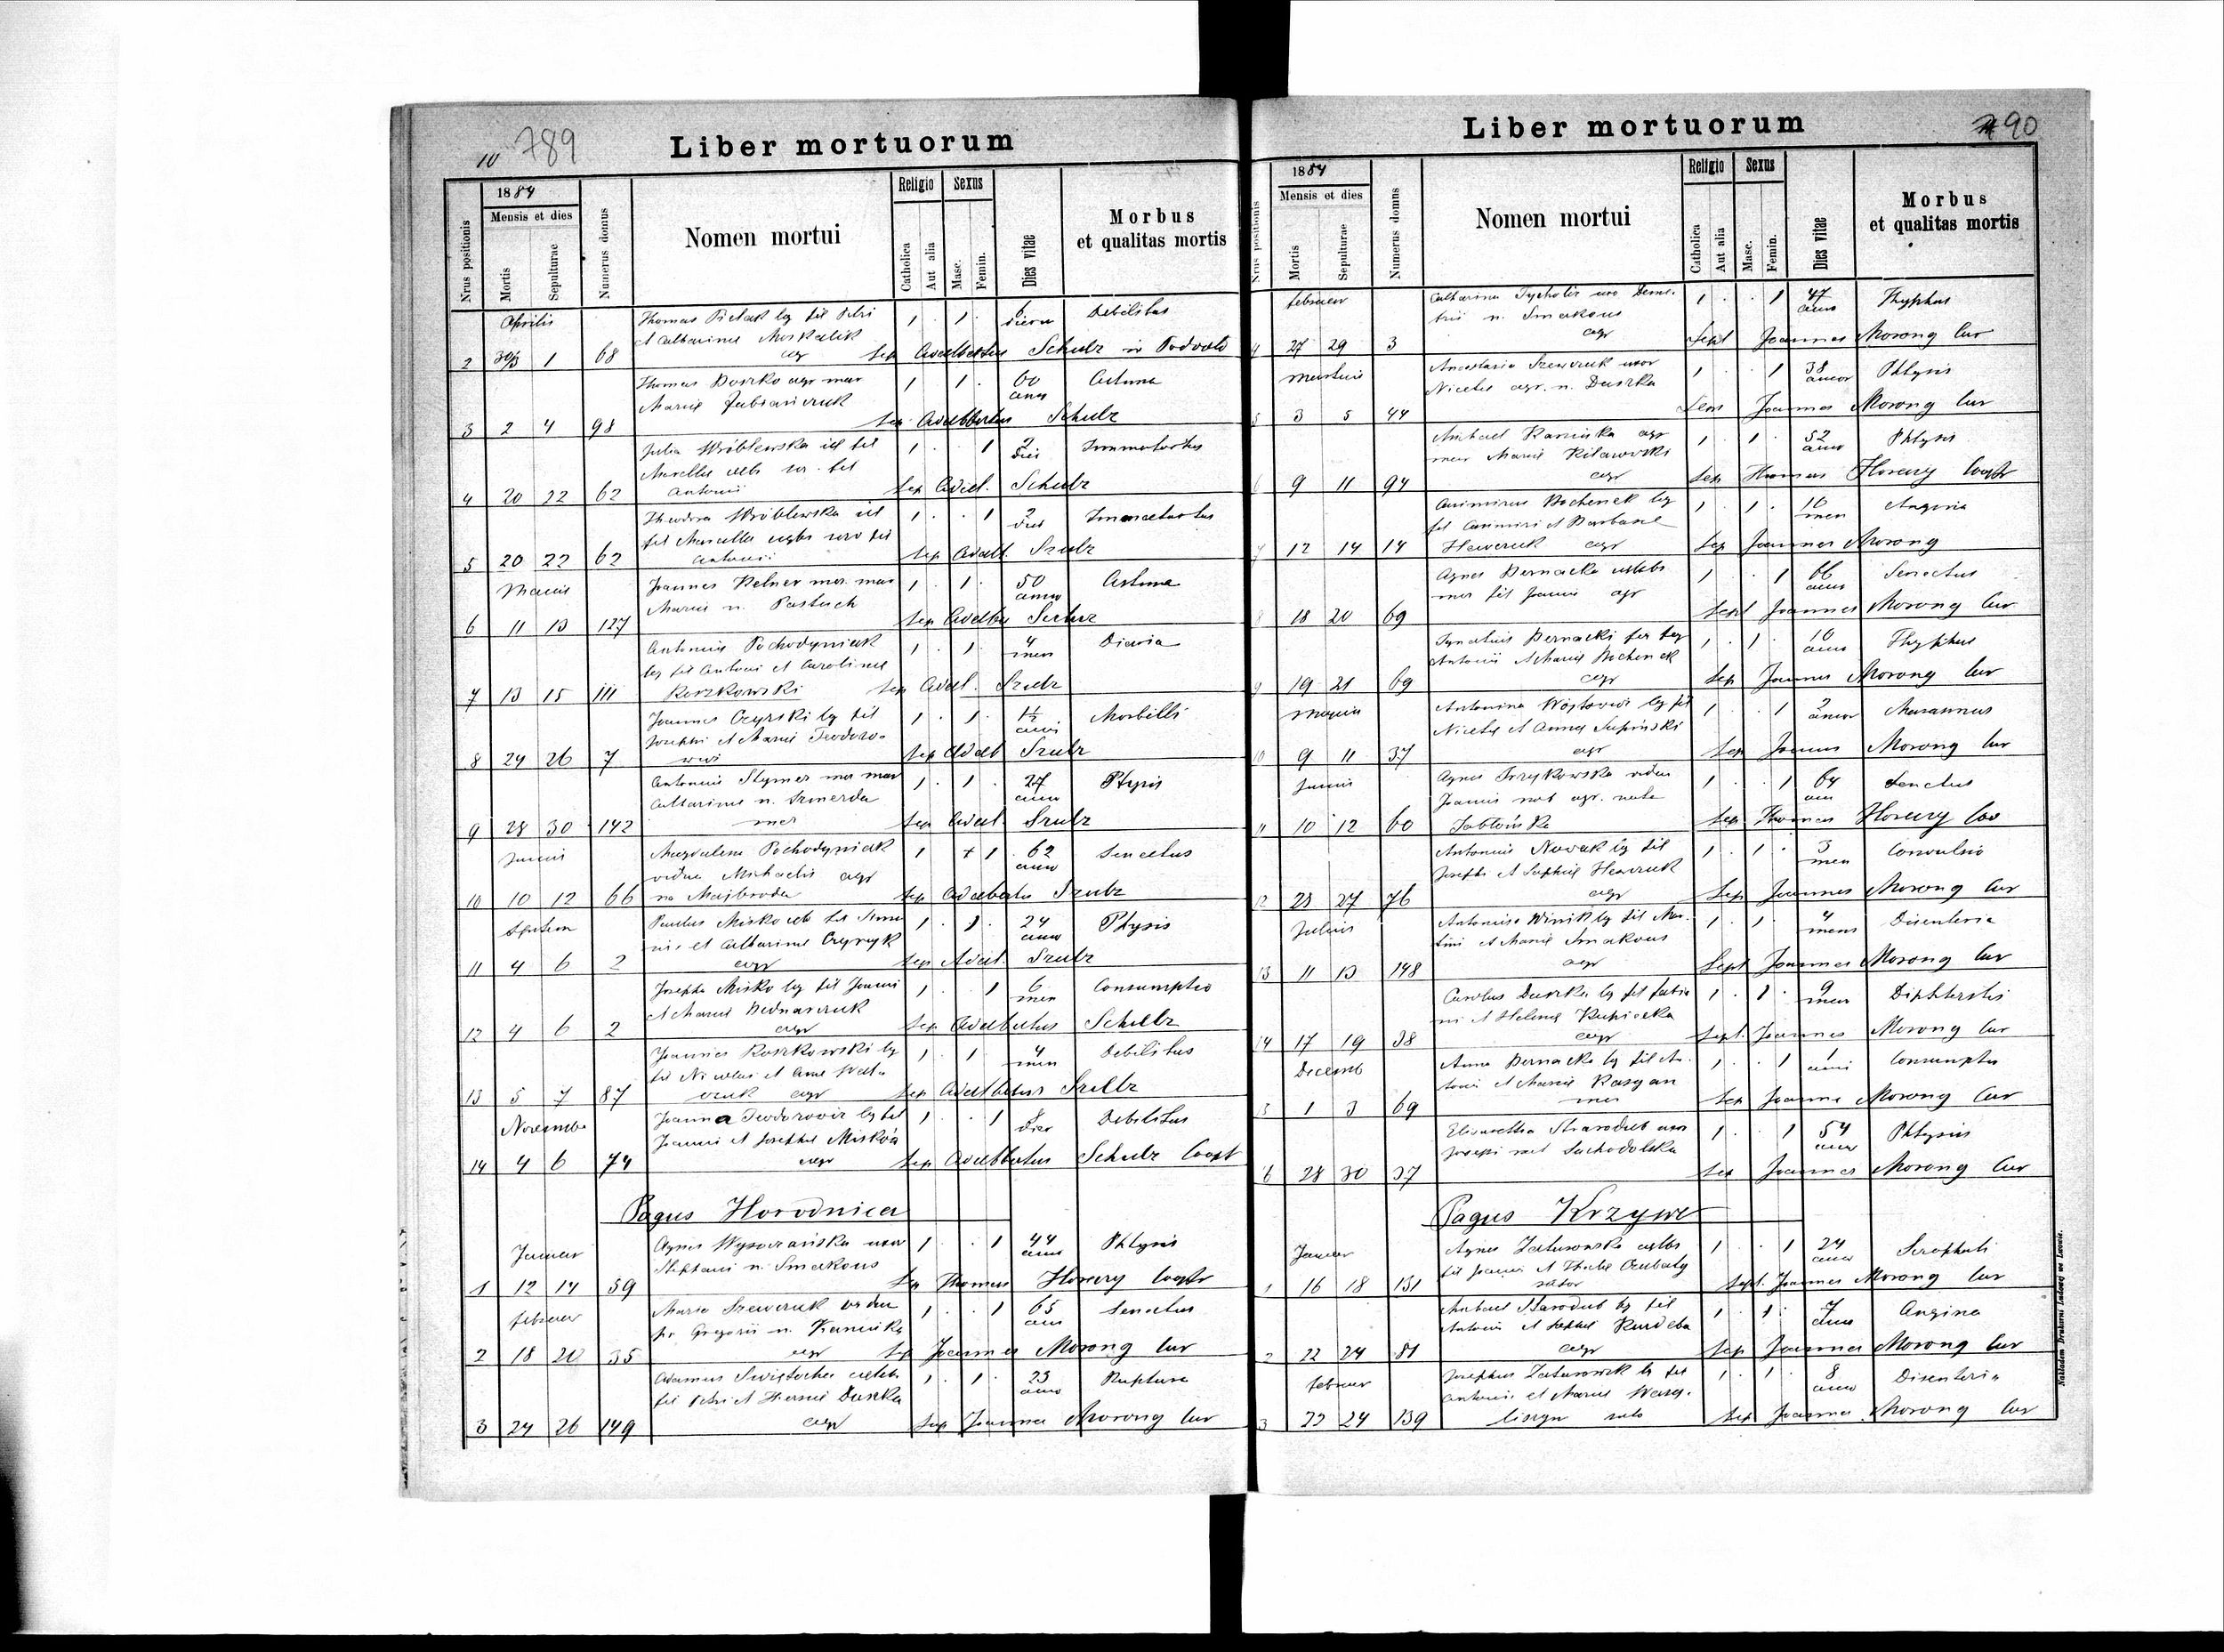 10 789
Liber mortuorum
1884
Mensis et dies
Nrus positionis
Mortis
Sepulturae
Numerus domus
Nomen mortui
Religio
Catholica
Aut alia
Sexus
Masc.
Femin.
Dies vitae
Morbus
et qualitas mortis
Aprilis
Thomas Pielak leg fil Petri 1 1 6 Debilitas
et Catharinae Moskalik dierum
agr
2 30/3 1 68 Sep Adalbertus Schulz in Podwolo
Thomas Boszko agr mar 1 1 60 Astma
Mariae annor
3 2 4 98 Sep Adalbertus Schulz
Julia Wróblewska ill fil 1 1 2 Immaturitas
Marcellae dies
Antonii
4 20 22 62 Sep Adal. Schulz
Theodora Wróblewska ill 1 1 2 Immaturitas
fil Marcellae dies
Antonii
5 20 22 62 Sep Adalb. Szulz
Maius
Joannes Kelner mer. mar 1 1 50 Astma
Mariae n. Pastuch annor
6 11 13 127 Sep Adalber Szulz
Antonius Pochodyniak 1 1 4 Diaria
leg fil Antoni et Carolinae men
Koszkowski
7 13 15 111 Sep Adal. Szulz
Joannes Czyrski leg fil 1 1 1½ Morbilli
Josephi et Mariae Teodoro- anni
wicz
8 24 26 7 Sep Adalb Szulz
Antonius Slymer mer mar 1 1 27 Ptysis
Catharinae n. Szmerda annor
mer
9 28 30 142 Sep Adal Szulz
Junius
Magdalena Pochodyniak 1 + 1 62 Senectus
vidua Michaelis agr annor
na Majbroda
10 10 12 66 Sep Adalbertus Szulz
Septem
Paulus Misko celb fil Simo 1 1 24 Phtysis
nis et Catharinae Czyzyk annor
agr
11 4 6 2 Sep Adal Szulz
Josepha Misko leg fil Joannis 1 1 6 Consumptio
et Mariae Bednarczuk men
agr
12 4 6 2 Sep Adalbertus Schulz
Joannes Koszkowski leg 1 1 4 Debilitas
fil Nicolai et Annae men
agr
13 5 7 87 Sep Adalbertus Szulz
Novembr
Joanna Teodorowicz leg fil 1 1 8 Debilitas
Joannis et Josephae Misków dier
agr
14 4 6 74 Sep Adalbertus Schulz Coopt
Pagus Horodnica
Januar
Agnes Wysoczańska uxor 1 1 44 Phtysis
Stephani n. Smakous annor
1 12 14 59 Sep Thomas Horary cooptr
Februar
Maria Szewczuk vidua 1 1 65 Senectus
po Gregorii n. Kaminska ann
agr
2 18 20 35 Sep Joannes Morong Cur
Adamus Swistocha celeb 1 1 23 Ruptura
fil Petri et Duszka annor
agr
3 24 26 149 Sep Joannes Morong Cur
90
Liber mortuorum
1884
Mensis et dies
Nrus positionis
Mortis
Sepulturae
Numerus domus
Nomen mortui
Religio
Catholica
Aut alia
Sexus
Masc.
Femin.
Dies vitae
Morbus
et qualitas mortis
Februar
Catharina Tycholis uxor Deme- 1 1 47 Thyphus
trii n. Smakous annor
agr
4 27 29 3 Sept Joannes Morong Cur
Martius
Anastasia Szewczuk uxor 1 1 38 Phtysis
Nicetae agr. n. Duszka annor
5 3 5 44 Sep Joannes Morong Cur
Michael Kaminska agr 1 1 52 Phtysis
mar Mariae Kilarowski annor
agr
6 9 11 94 Sep Thomas Horary cooptr
Casimirus Bochenek leg 1 1 10 Angina
fil Casimiri et Barbarae men
Hawczuk agr
7 12 14 14 Sep Joannes Morong
Agnes Bernacka celebs 1 1 66 Senectus
mer fil Joannis agr annor
8 18 20 69 Sept Joannes Morong Cur
Ignatius Bernacki fil leg 1 1 10 Thyphus
Antonii et Mariae Bochenek annor
agr
9 19 21 69 Sep Joannes Morong Cur
Majus
Antonina Wójtowicz leg fil 1 1 2 Marasmus
Nicetae et Annae Supiński annor
agr
10 9 11 37 Sep Joannes Morong Cur
Junius
Agnes vidua 1 1 64 Senectus
Joannis not agr. nata ann
Jabłońska
11 10 12 60 Sep Thomas Horary Coo
Antonius Nowak leg fil 1 1 3 Convulsio
Josephi et Sophiae Hawczuk men
agr
12 25 27 76 Sep Joannes Morong Cur
Julius
Antonius Winik leg fil Mar- 1 1 4 Disenteria
tini et Mariae Smakous mens
agr
13 11 13 148 Sept Joannes Morong Cur
Carolus Duszka leg fil Fabia 1 1 9 Diphteritis
ni et Helenae Kupiecka men
agr
14 17 19 38 Sept. Joannes Morong Cur
Decemb
Anna Bernacka leg fil An- 1 1 1 Consumptio
tonii et Mariae Kasyan anni
mer
15 1 3 69 Sep Joanne Morong Cur
Elisabetha Starodub uxor 1 1 54 Phtysis
Josephi nat Suchodolska annor
16 28 30 37 Sep Joannes Morong Cur
Pagus Krzywe
Januar
Agnes Zatwarnska celbs 1 1 24 Scrophuli
fil Joannis et Theclae annor
sutor
1 16 18 131 Sept. Joannes Morong Cur
Michael Starodub leg fil 1 1 7 Angina
Antonii et Sophiae Kurdeba annor
agr
2 22 24 81 Sep Joannes Morong Cur
Februar
Josephus leg fil 1 1 8 Disenteria
Antonii et Mariae annor
3 22 24 139 Sep Joannes Morong Cur
Nakładem Drukarni Ludowej we Lwowie.